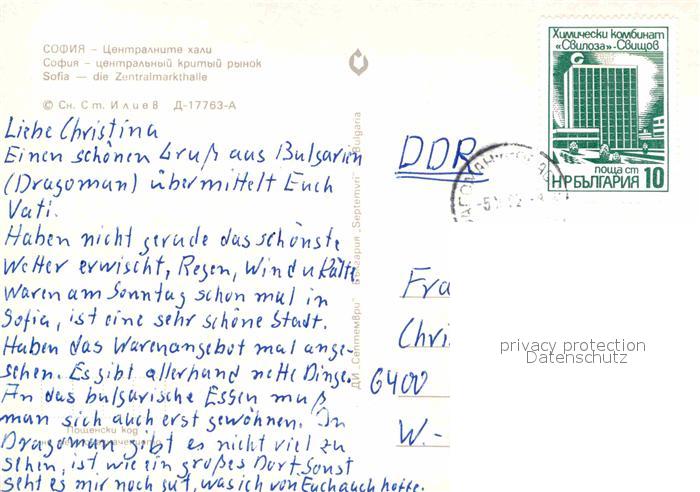 СОФИЯ – Централните хали
София – центральный критый рынок
Sofia — die Zentralmarkthalle
© Сн. Ст. Илиев Д-17763-А
Liebe Christina
Einen schönen Gruß aus Bulgarien
(Dragoman) übermittelt Euch
Vati.
Haben nicht gerade das schönste
Wetter erwischt, Regen, Wind u Kälte
Waren am Sonntag schon mal in
Sofia, ist eine sehr schöne Stadt.
Haben das Warenangebot mal ange-
sehen. Es gibt allerhand nette Dinge.
An das bulgarische Essen muß
man sich auch erst gewöhnen. In
Dragoman gibt es nicht viel zu
sehen, ist wie ein großes Dorf. Sonst
geht es mir noch gut, was ich von Euch auch hoffe.
Пощенски код
ДИ „Септември" България „Septemvri" Bulgaria
Химически комбинат
„Свилоза"-Свищов
поща ст
НР БЪЛГАРИЯ 10
DDR
Fra
Chri
6400
W.-
privacy protection
Datenschutz